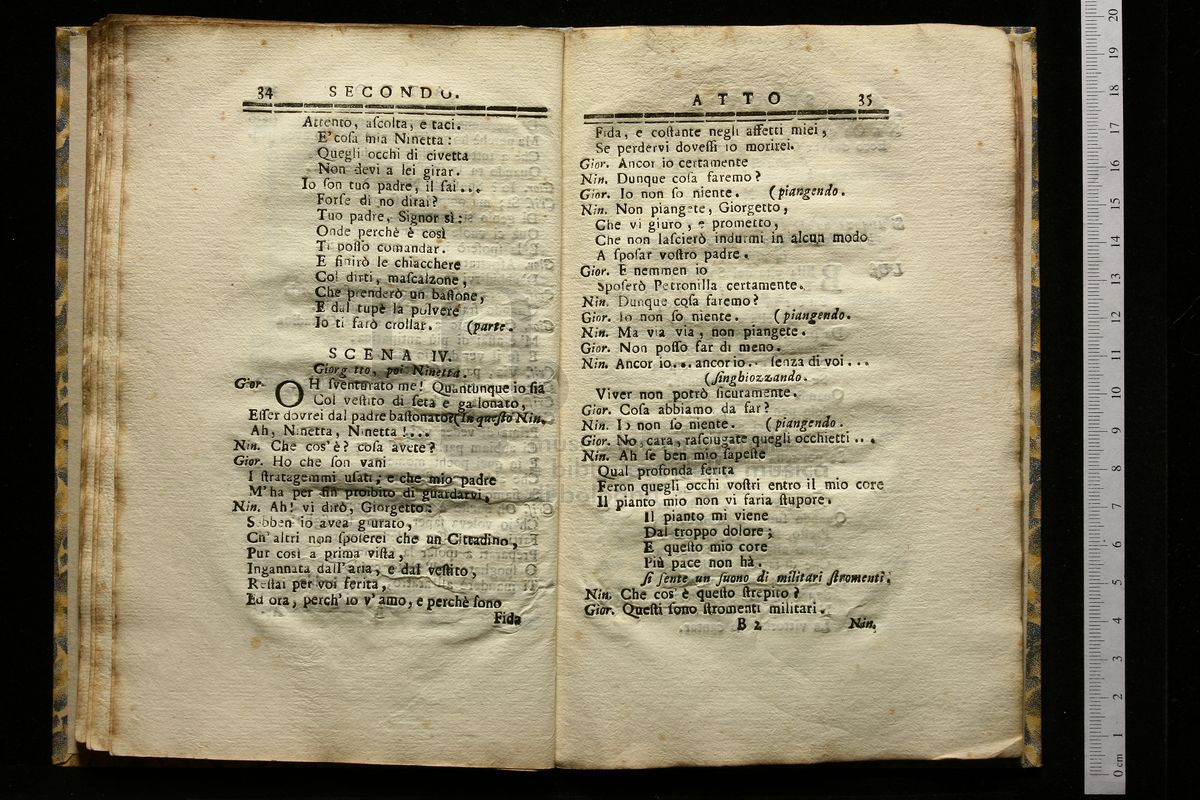 34 SECONDO.
Attento, aſcolta, e taci.
E' coſa mia Ninetta:
Quegli occhi di civetta
Non devi a lei girar.
Io ſon tuo padre, il ſai...
Forſe di no dirai?
Tuo padre, Signor sì:
Onde perchè è così
Ti poſſo comandar.
E finirò le chiacchere
Col dirti, maſcalzone,
Che prenderò un baſtone,
E dal tupè la polvere
Io ti farò crollar. (parte.
SCENA IV.
Giorgetto, poi Ninetta.
Gior. OH ſventurato me! Quantunque io ſia
Col veſtito di ſeta e gallonato,
Eſſer dovrei dal padre baſtonato? (In queſto Nin.
Ah, Ninetta, Ninetta!...
Nin. Che cos' è? coſa avete?
Gior. Ho che ſon vani
I ſtratagemmi uſati; e che mio padre
M'ha per fin proibito di guardarvi.
Nin. Ah! vi dirò, Giorgetto:
Sebben io avea giurato,
Ch' altri non ſpoſerei che un Cittadino,
Pur così a prima viſta,
Ingannata dall' aria, e dal veſtito,
Reſtai per voi ferita,
Ed ora, perch' io v' amo, e perchè ſono
Fida
ATTO 35
Fida, e coſtante negli affetti miei,
Se perdervi doveſſi io morirei.
Gior. Ancor io certamente
Nin. Dunque coſa faremo?
Gior. Io non ſo niente. (piangendo.
Nin. Non piangete, Giorgetto,
Che vi giuro, e prometto,
Che non laſcierò indurmi in alcun modo
A ſpoſar voſtro padre.
Gior. E nemmen io
Spoſerò Petronilla certamente.
Nin. Dunque coſa faremo?
Gior. Io non ſo niente. (piangendo.
Nin. Ma via via, non piangete.
Gior. Non poſſo far di meno.
Nin. Ancor io... ancor io... ſenza di voi...
(ſinghiozzando.
Viver non potrò ſicuramente.
Gior. Coſa abbiamo da far?
Nin. Io non ſo niente. (piangendo.
Gior. No, cara, raſciugate quegli occhietti...
Nin. Ah ſe ben mio ſapeſte
Qual profonda ferita
Feron quegli occhi voſtri entro il mio core
Il pianto mio non vi faria ſtupore.
Il pianto mi viene
Dal troppo dolore;
E queſto mio core
Più pace non hà.
ſi ſente un ſuono di militari ſtromenti.
Nin. Che cos' è queſto ſtrepito?
Gior. Queſti ſono ſtromenti militari.
B 2 Nin.
0 cm 1 2 3 4 5 6 7 8 9 10 11 12 13 14 15 16 17 18 19 20